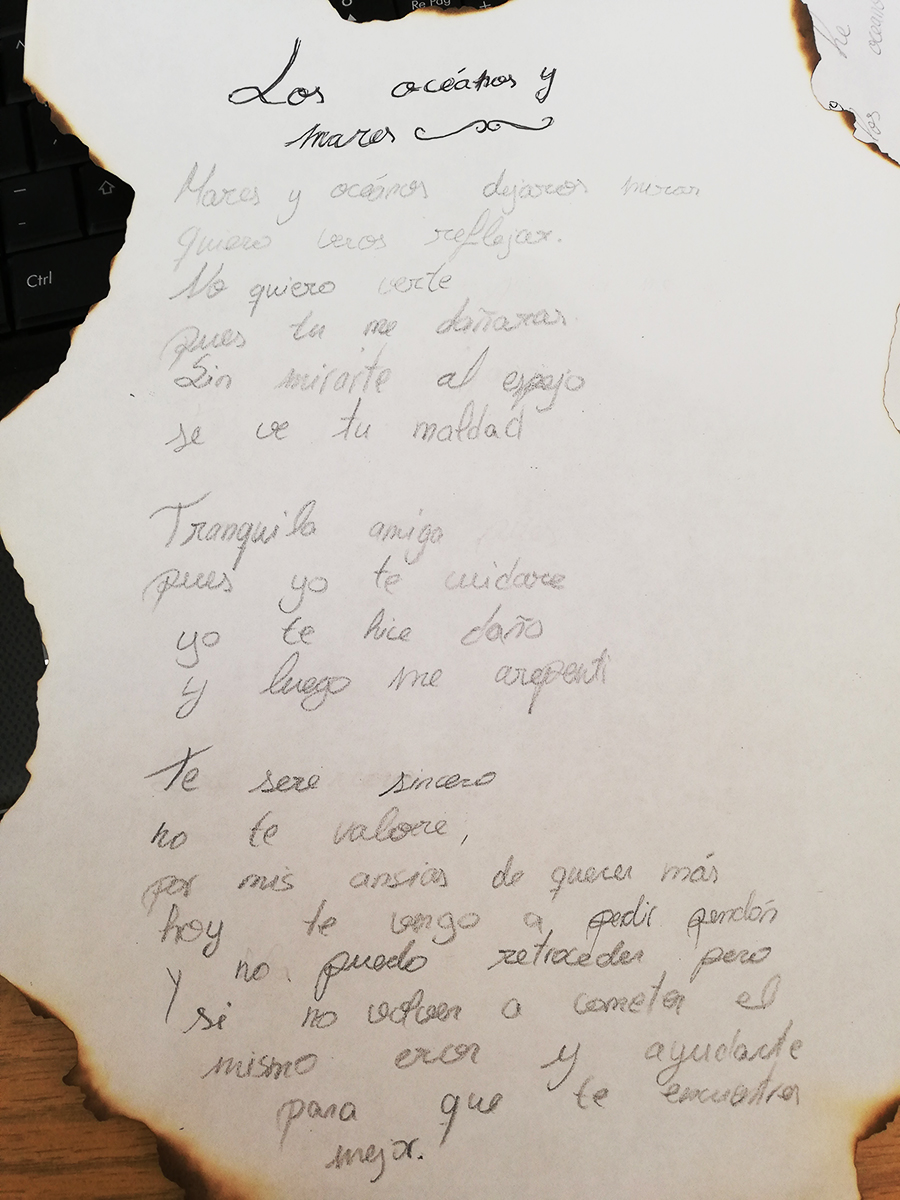 Los océanos y
mares
Mares y océanos dejaros mirar
quiero veros reflejar.
No quiero verte
pues tu me dañaras
Sin mirarte al espejo
se ve tu maldad
Tranquila amiga
pues yo te cuidare
yo te hice daño
y luego me arepenti
Te sere sincero
no te valore,
por mis ansias de querer más
hoy te vengo a pedir perdón
y no puedo retroceder pero
si no volver a cometer el
mismo eror y ayudarte
para que te encuentres
mejor.
Ctrl
Re Pág
he
océanos
los